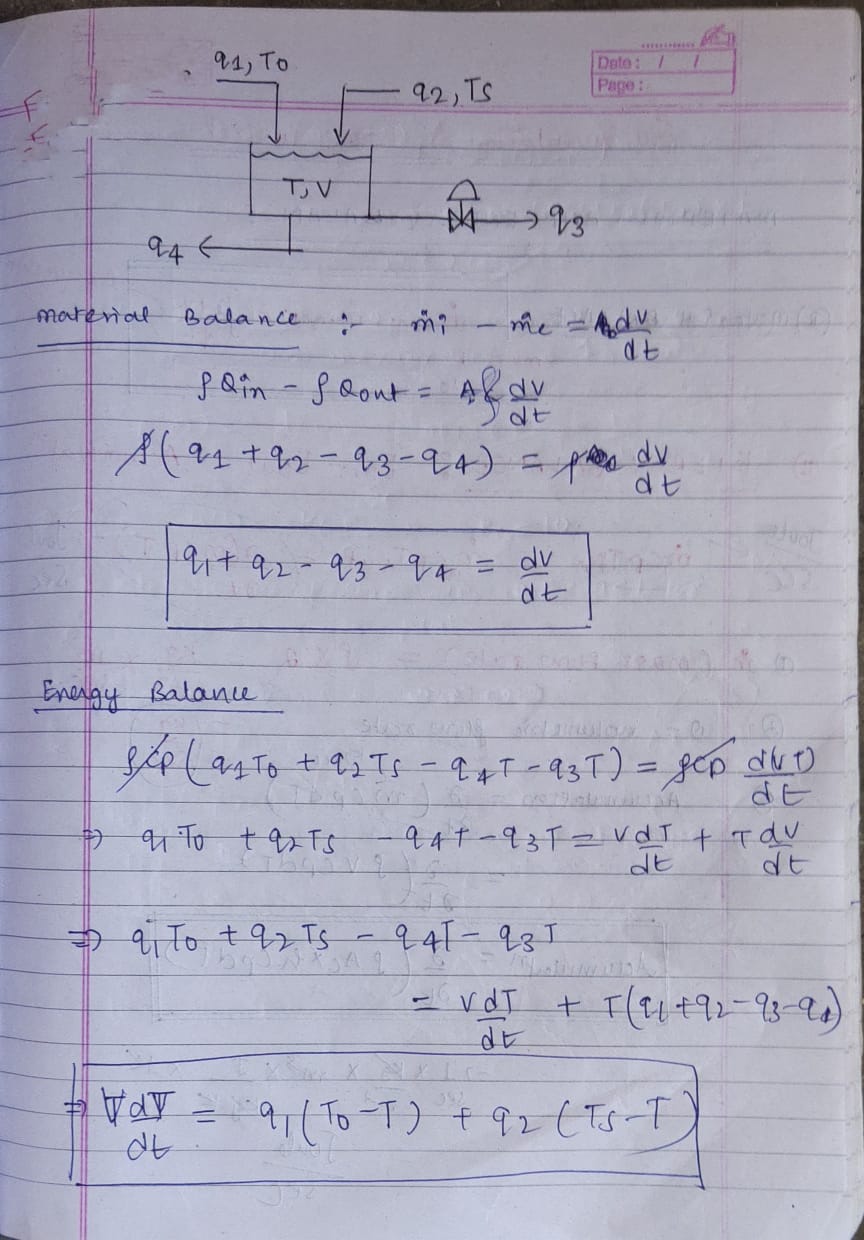 q1, To
Date: / /
Page:
q2, Ts
T, V
q3
q4
material Balance :- ṁi - ṁe = dv/dt
ρQin - ρQout = Aρ dv/dt
ρ(q1 + q2 - q3 - q4) = ρ dv/dt
q1 + q2 - q3 - q4 = dv/dt
Energy Balance
ρcp(q1To + q2Ts - q4T - q3T) = ρcp d(VT)/dt
⇒ q1To + q2Ts - q4T - q3T = V dT/dt + T dv/dt
⇒ q1To + q2Ts - q4T - q3T
= V dT/dt + T(q1 + q2 - q3 - q4)
⇒ V dT/dt = q1(To - T) + q2(Ts - T)